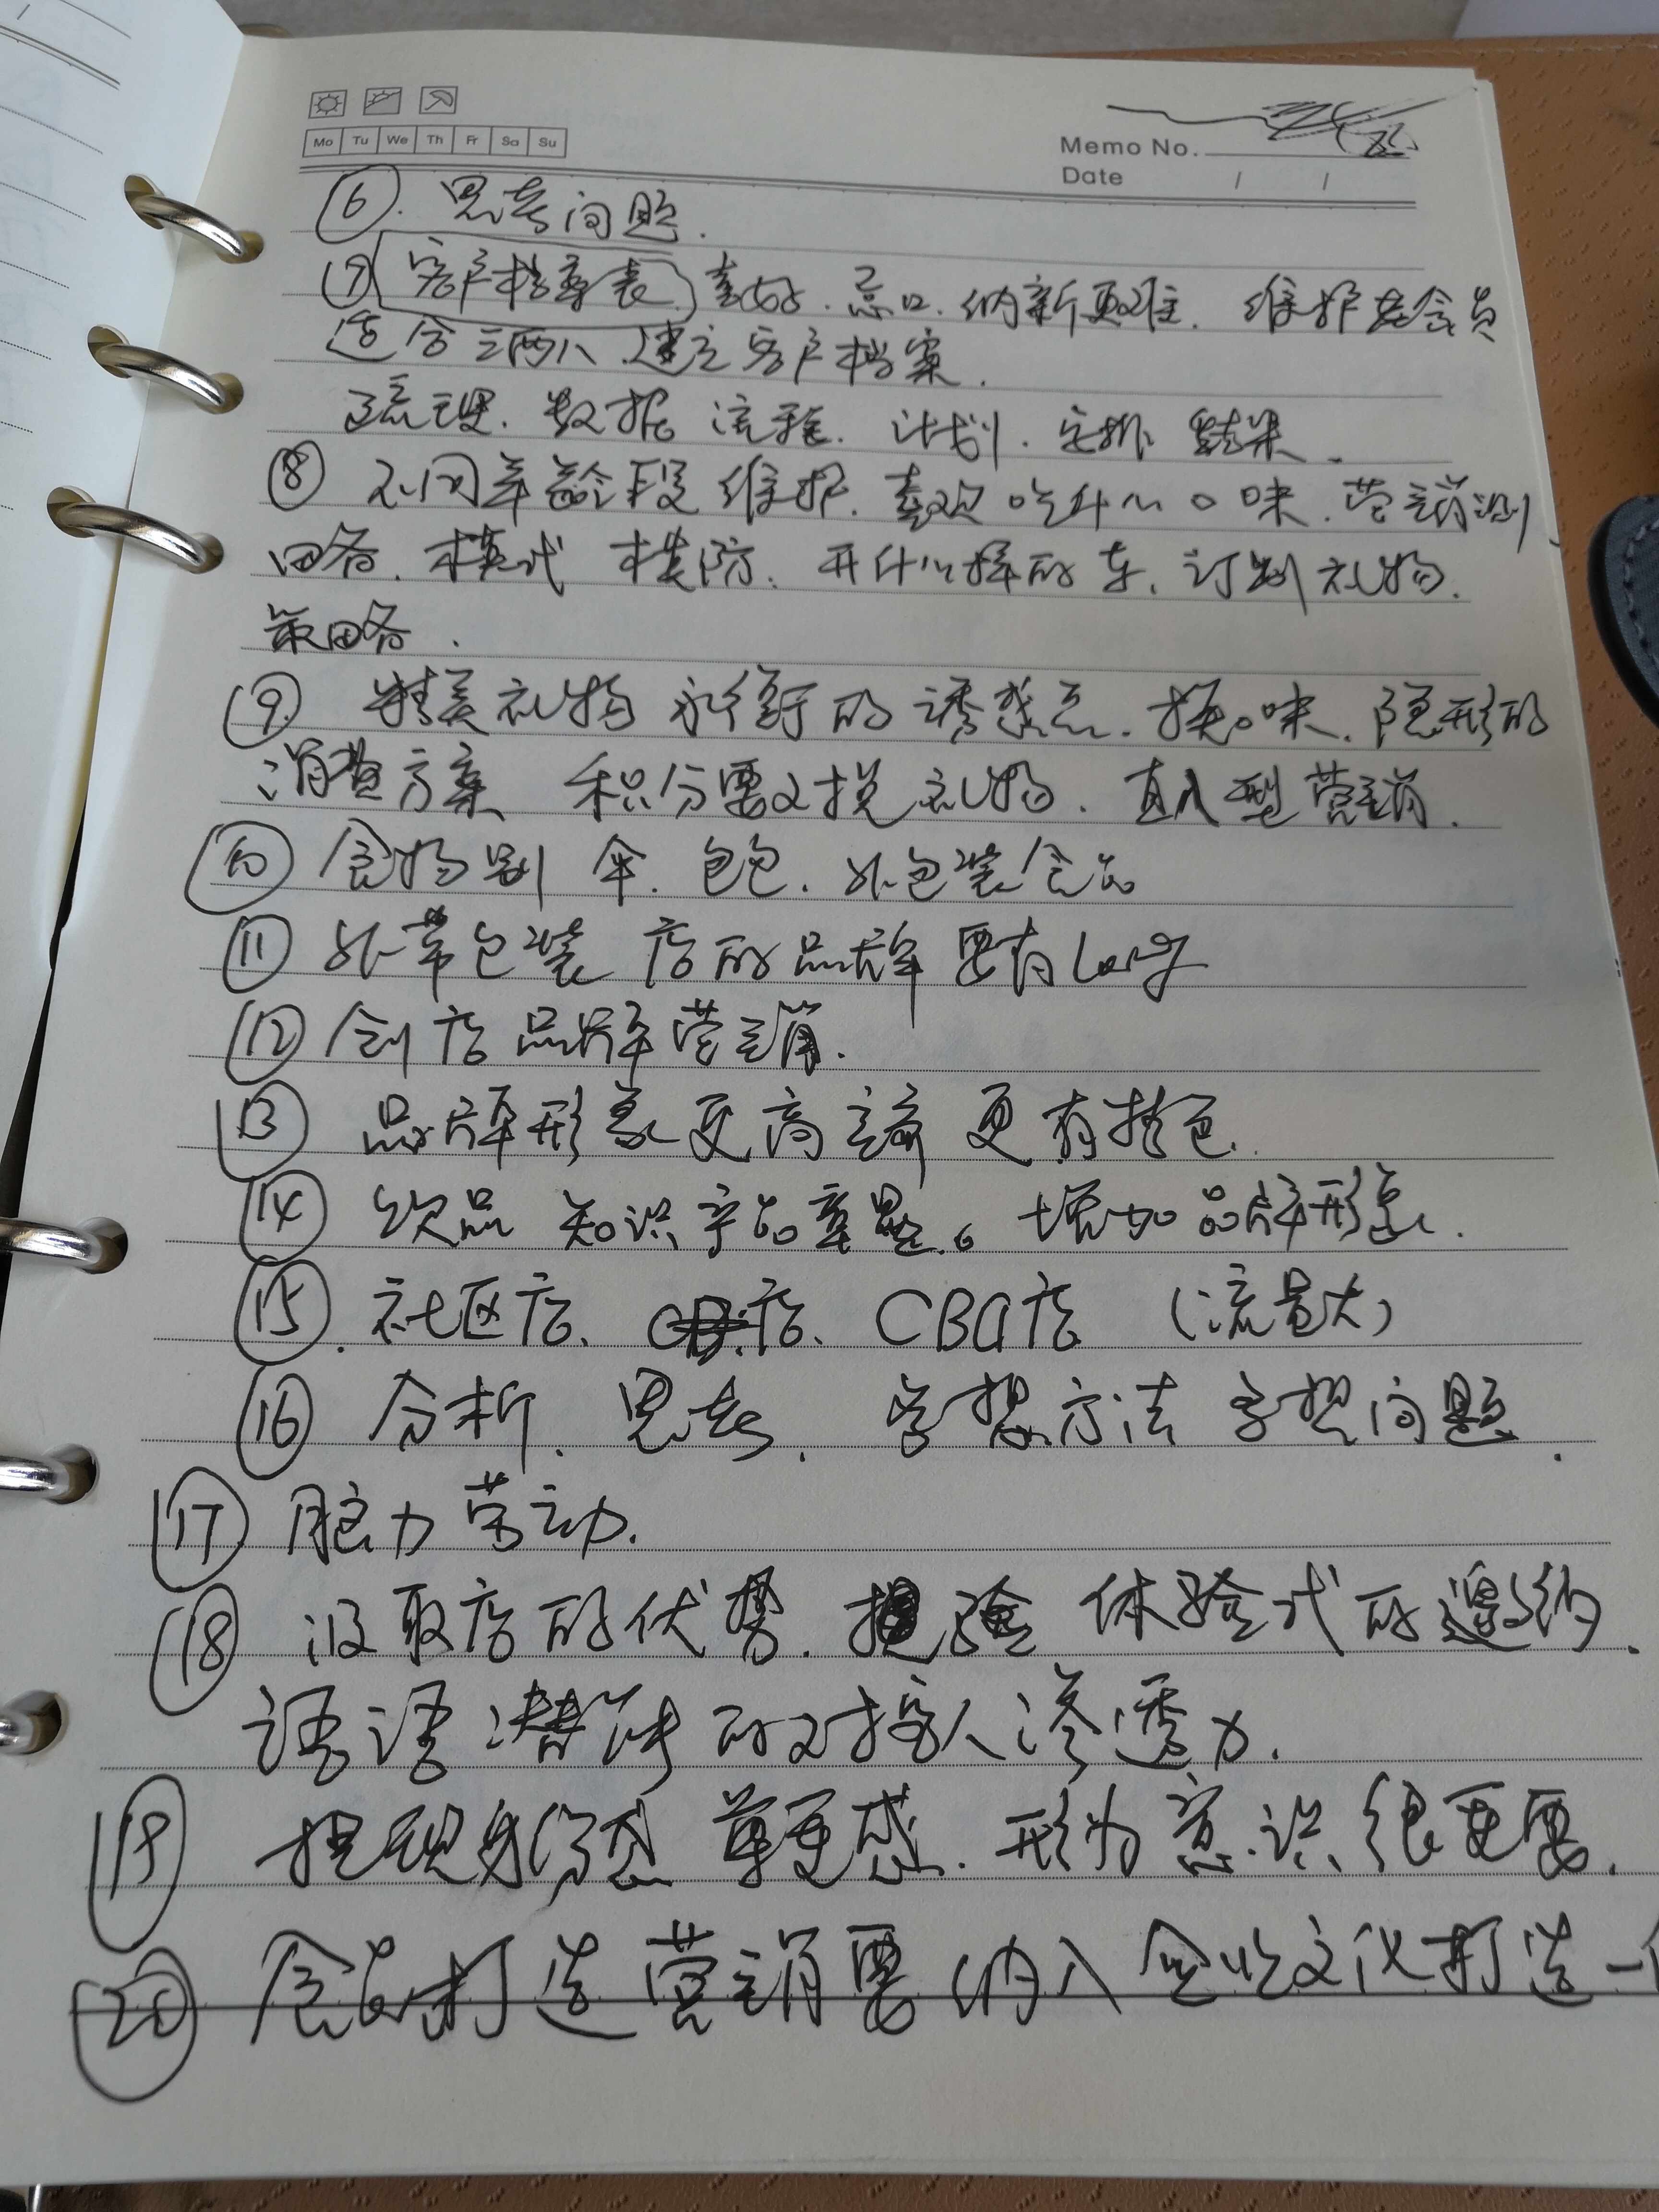 Mo Tu We Th Fr Sa Su
Memo No.
Date / /
⑥. 思考问题.
⑦ 客户档案表 喜好. 忌口. 纳新更难. 维护老会员
适合三两人 建立客户档案.
疏理. 数据 流程. 计划. 安排 结果.
⑧ 不同年龄段 维护. 喜欢吃什么口味. 营销
略. 模式 模防. 开什么样的车. 订制礼物.
策略.
⑨ 精美礼物 永衡的诱惑点. 换口味. 隐形的
消费方案 积分要对换礼物. 直入型营销.
⑩ 食物 伞. 包包. 外包装食品
⑪ 外带包装 店的品牌要有
⑫ 创店品牌营销.
⑬ 品牌形象更高端 更有特色.
⑭ 饮品 知识产品. 增加品牌形象.
⑮. 社区店. 店. CBA店 (流量大)
⑯ 分析. 思考. 学习方法 学习问题.
⑰ 脑力劳动.
⑱ 汲取店的优势. 体验式的邀约.
话语潜能的对客人渗透力.
⑲ 提现身份感 尊重感. 形为意识很重要.
⑳ 食品打造营销要纳入企业文化打造一